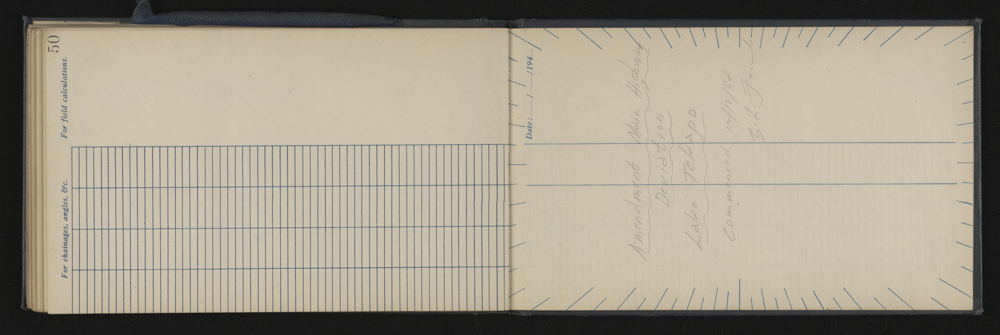 50
For field calculations.
For chainages, angles, &c.
Date: / /194
Amendment Main Highway
Deviation
Lake Tekapo
Commenced